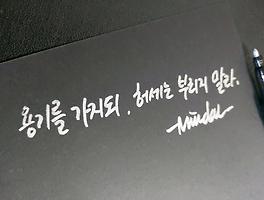 용기를 가지되, 허세는 부리지 말라.